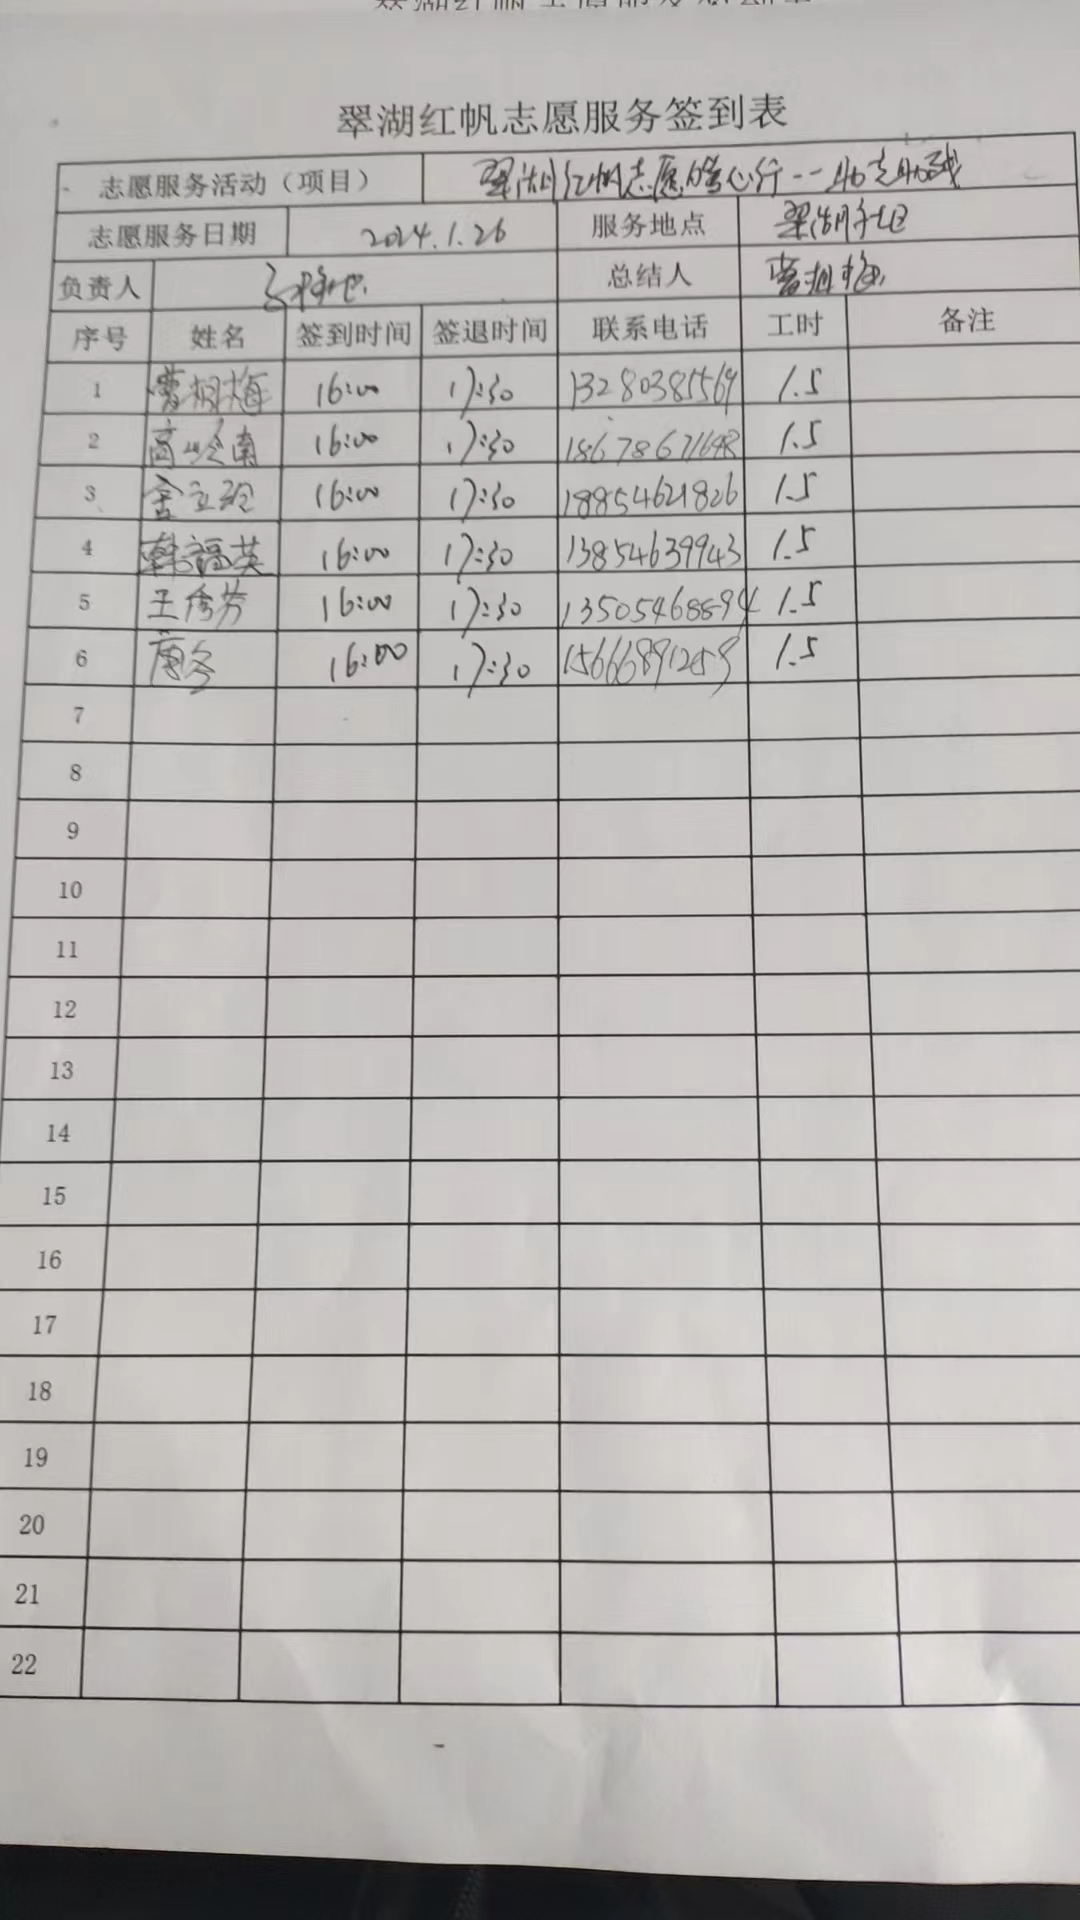 翠湖红帆志愿服务签到表
志愿服务活动（项目） 翠湖红帆志愿暖心行--助老助残
志愿服务日期 2024.1.26 服务地点 翠湖社区
负责人 总结人 曹树梅
序号 姓名 签到时间 签退时间 联系电话 工时 备注
1 曹树梅 16:00 17:30 13280385569 1.5
2 高岭南 16:00 17:30 18678671648 1.5
3 16:00 17:30 18854621826 1.5
4 韩福英 16:00 17:30 13854639943 1.5
5 王秀芳 16:00 17:30 13505468894 1.5
6 16:00 17:30 15666891259 1.5
7
8
9
10
11
12
13
14
15
16
17
18
19
20
21
22